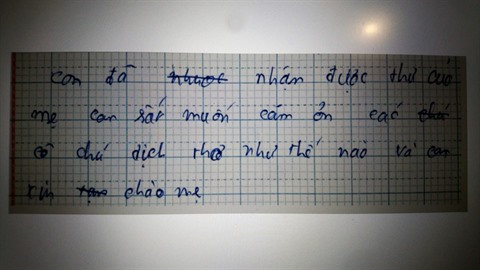 con đã nhận được thư của
mẹ con rất muốn cảm ơn các
cô chú dịch thơ như thế nào và con
xin chào mẹ